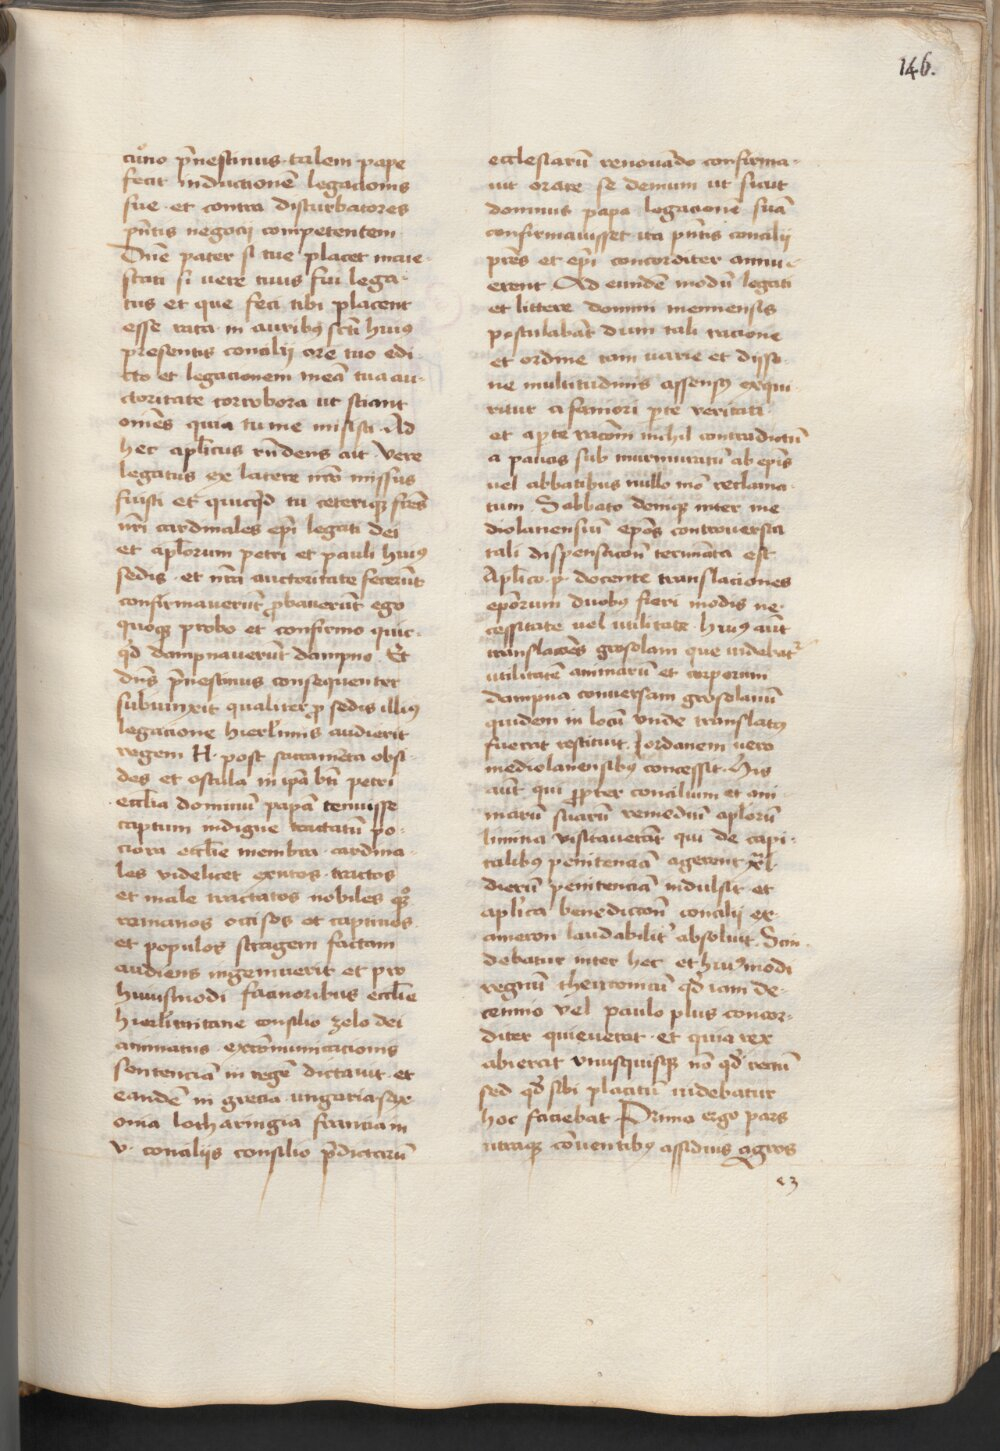 146.
cuͦno p̄nestinus talem pape
fecit inductionē legacionis
sue et contra disturbatores
p̄ntis negocij competentem
Dn̄e pater si tue placet maie-
stati si vere tuus fui lega-
tus et que feci tibi placent
esse rata in auribꝰ sc̄ti huiꝰ
presentis concilij ore tuo edi-
cto et legacionem meā tua au-
ctoritate corrobora ut sciant
omēs quia tu me misisti Ad
hec apl̄icus rn̄dens ait Vere
legatus ex latere nr̄o missus
fuisti et quicqͥd tu ceteriqꝫ fr̄es
nr̄i cardinales ep̄i legati dei
et apl̄orum petri et pauli huiꝰ
sedis et nr̄a auctoritate fecer̄ut
confirmauerūt ꝓbauerūt ego
quoqꝫ probo et confirmo quic-
qͥd dampnauerūt dampno Et
dn̄s p̄nestinus consequenter
subiunxit qualiter ꝓ sedis illiꝰ
legacione hierl̄imis audierit
regem H. post sacramēta obsi-
des et oscula in ip̄a bt̄i petri
eccl̄ia dominū papā tenuisse
captum indigne tractatū po-
ciora eccl̄ie membra cardina-
les videlicet exutos tractos
et male tractatos nobiles qꝫ
romanos occisos et captiuos
et populos stragem factam
audiens ingemuerit et pro
huiusmodi facinoribus eccl̄ie
hierl̄imitane consilio zelo dei
animatus excōmunicacionis
sentenciā in regē dictauit et
eandē in grecia ungaria sax
onia lotharingia francia in
v. conciliis consilio p̄dictarū
ecclesiarū renouādo confirma-
uit orare se demum ut sicut
domnus papa legacionē suā
confirmauisset ita p̄ntis concilij
pr̄es et ep̄i concorditer annu-
erent Ad eundē modū legati
et littere domni viennensis
postulabāt dum tali racione
et ordine tam uarie et disso-
ne multitudinis assensꝰ exqui-
ritur a saniori p̄te veritati
et aperte racōni nichil contradictū
a paucis sub murmuratū ab ep̄is
vel abbatibus nullo mō reclama-
tum Sabbato deniqꝫ inter me
diolanensiū ep̄os controuersia
tali dispensacōn̄ terminata est
Apl̄ico .p. docente translaciones
ep̄orum duobꝰ fieri modis ne-
cessitate vel utilitate huiꝰ aūt
translacōes grosolam que uidebatͬ
utilitatē animarū et corporum
dampna conuersam grosolanū
quidem in locū vnde translatꝰ
fuerat restituit Jordanem uero
mediolanensibꝰ concessit His
aūt qui ꝓpter concilium et ani-
marū suarū remediū apl̄orū
limina visitauerāt qui de capi-
talibꝰ penitenciā agerent xl̄
dierū penitenciā indulsit et
apl̄ica benedictōn̄ concilij ex-
ameron laudabilit̓ absoluit. Scin-
debatur inter hec et huiꝰmodi
regnū theutonicū qd̄ iam de-
cennio vel paulo plus concor-
diter quieuerat et quia rex
abierat vnusquisqꝫ nō qd̄ rectū
sed qd̄ sibi placitū uidebatur
hoc faciebat Primo ergo pars
utraqꝫ cōuentibꝰ assiduis agros